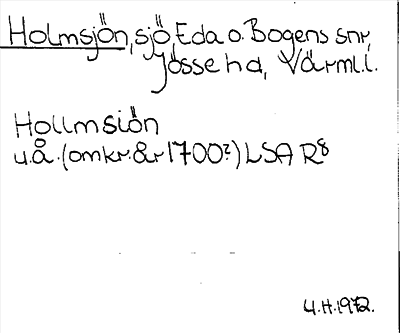 Holmsjön, sjö, Eda o. Bogens snr,
Jösse hd, Värml.l.
Hollmsiön
u.å. (omkr. år 1700?) LSA R8
4.H.1972.